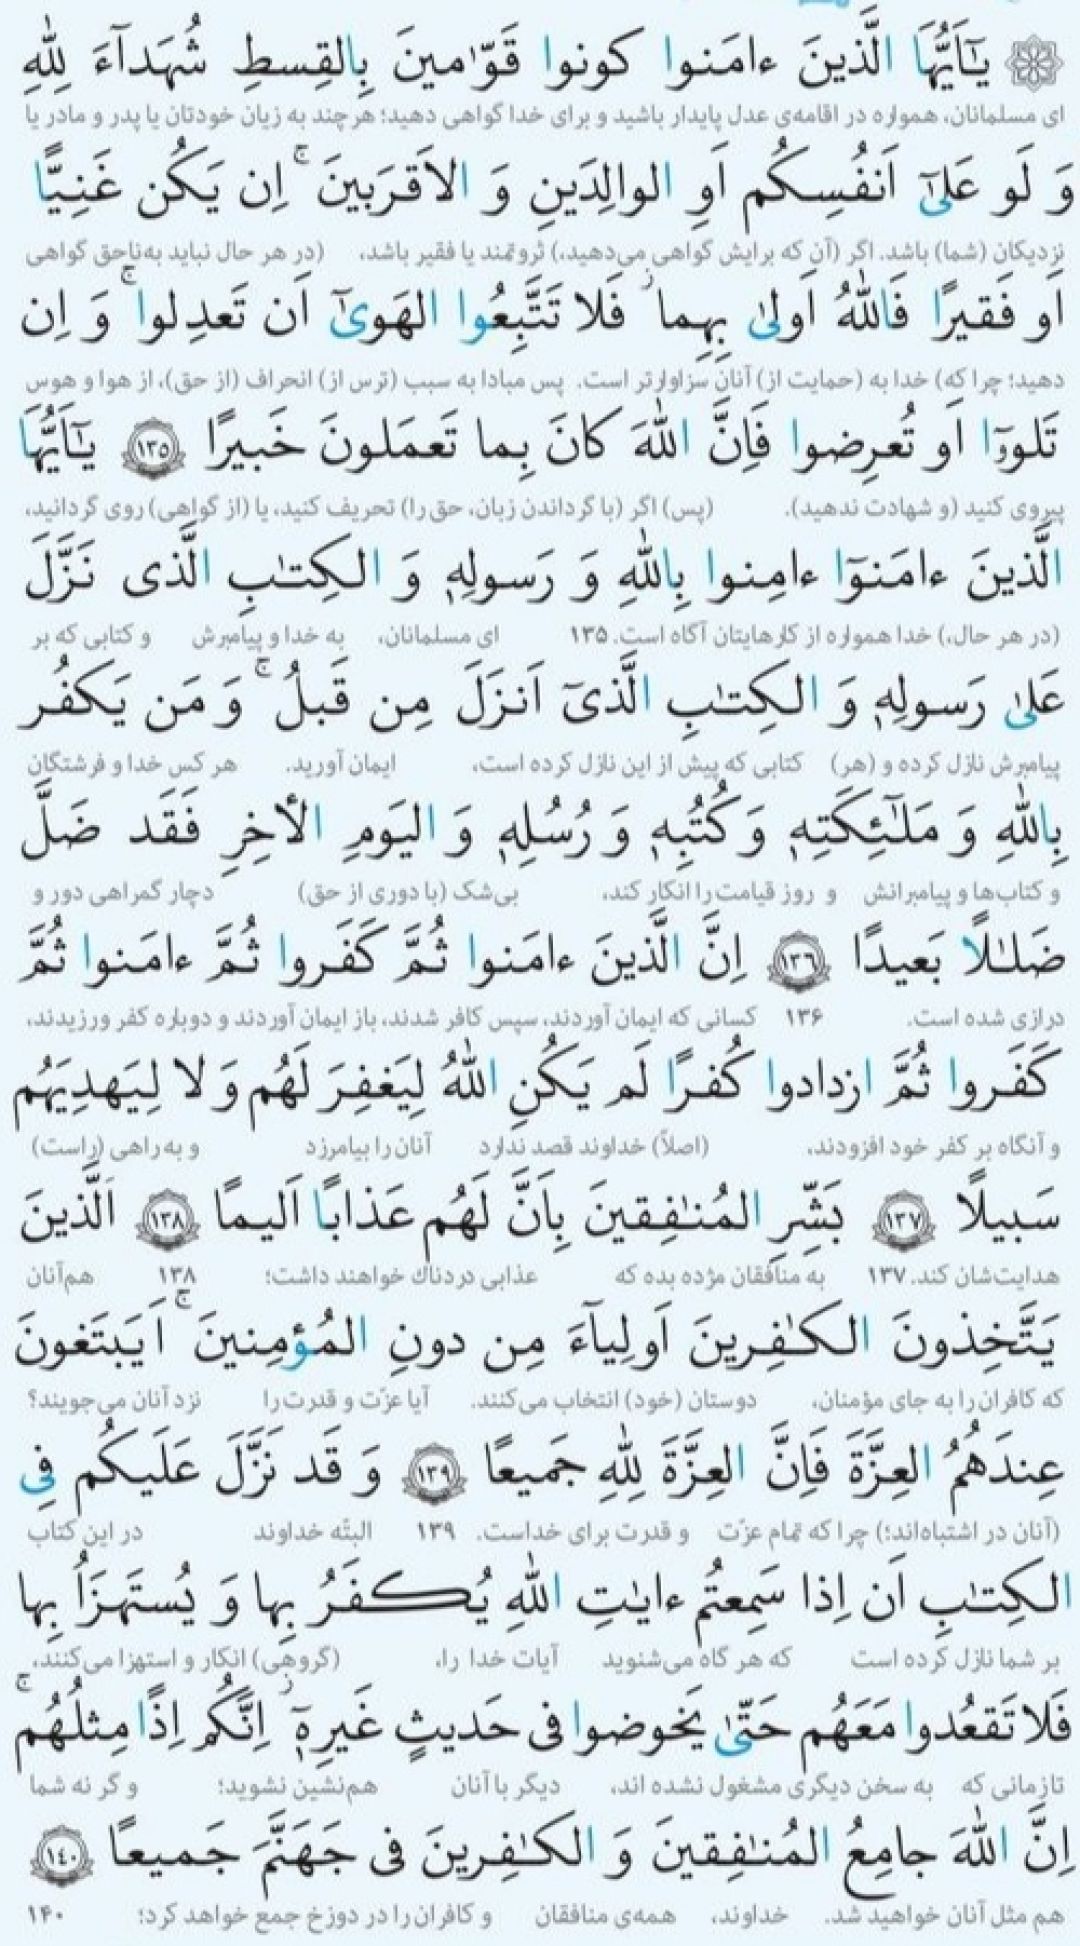 يـٰٓاَيُّهَا الَّذينَ ءامَنوا كونوا قَوّٰمينَ بِالقِسطِ شُهَدآءَ لِلّٰهِ
ای مسلمانان، همواره در اقامه‌ی عدل پایدار باشید و برای خدا گواهی دهید؛ هر چند به زیان خودتان یا پدر و مادر یا
وَ لَو عَلىٰٓ اَنفُسِكُم اَوِ الوالِدَينِ وَ الاَقرَبينَ ۚ اِن يَكُن غَنِيًّا
نزدیکان (شما) باشد. اگر (آن که برایش گواهی می‌دهید،) ثروتمند یا فقیر باشد، (در هر حال نباید به‌ناحق گواهی
اَو فَقيرًا فَاللّٰهُ اَولىٰ بِهِما ۖ فَلا تَتَّبِعُوا الهَوىٰٓ اَن تَعدِلوا ۚ وَ اِن
دهید؛ چرا که) خدا به (حمایت از) آنان سزاوارتر است. پس مبادا به سبب (ترس از) انحراف (از حق)، از هوا و هوس
تَلوۥٓا اَو تُعرِضوا فَاِنَّ اللّٰهَ كانَ بِما تَعمَلونَ خَبيرًا ﴿١٣٥﴾ يـٰٓاَيُّهَا
پیروی کنید (و شهادت ندهید). (پس) اگر (با گرداندن زبان، حق را) تحریف کنید، یا (از گواهی) روی گردانید،
الَّذينَ ءامَنوٓا ءامِنوا بِاللّٰهِ وَ رَسولِهٖ وَ الكِتـٰبِ الَّذى نَزَّلَ
(در هر حال،) خدا همواره از کارهایتان آگاه است. ۱۳۵ ای مسلمانان، به خدا و پیامبرش و کتابی که بر
عَلىٰ رَسولِهٖ وَ الكِتـٰبِ الَّذىٓ اَنزَلَ مِن قَبلُ ۚ وَ مَن يَكفُر
پیامبرش نازل کرده و (هر) کتابی که پیش از این نازل کرده است، ایمان آورید. هر کس خدا و فرشتگان
بِاللّٰهِ وَ مَلـٰٓئِكَتِهٖ وَ كُتُبِهٖ وَ رُسُلِهٖ وَ اليَومِ الأخِرِ فَقَد ضَلَّ
و کتاب‌ها و پیامبرانش و روز قیامت را انکار کند، بی‌شک (با دوری از حق) دچار گمراهی دور و
ضَلـٰلًا بَعيدًا ﴿١٣٦﴾ اِنَّ الَّذينَ ءامَنوا ثُمَّ كَفَروا ثُمَّ ءامَنوا ثُمَّ
درازی شده است. ۱۳۶ کسانی که ایمان آوردند، سپس کافر شدند، باز ایمان آوردند و دوباره کفر ورزیدند،
كَفَروا ثُمَّ ازدادوا كُفرًا لَم يَكُنِ اللّٰهُ لِيَغفِرَ لَهُم وَ لا لِيَهدِيَهُم
و آنگاه بر کفر خود افزودند، (اصلاً) خداوند قصد ندارد آنان را بیامرزد و به راهی (راست)
سَبيلًا ﴿١٣٧﴾ بَشِّرِ المُنـٰفِقينَ بِاَنَّ لَهُم عَذابًا اَليمًا ﴿١٣٨﴾ اَلَّذينَ
هدایت‌شان کند. ۱۳۷ به منافقان مژده بده که عذابی دردناك خواهند داشت؛ ۱۳۸ هم‌آنان
يَتَّخِذونَ الكـٰفِرينَ اَولِيآءَ مِن دونِ المُؤمِنينَ ۚ اَيَبتَغونَ
که کافران را به جای مؤمنان، دوستان (خود) انتخاب می‌کنند. آیا عزّت و قدرت را نزد آنان می‌جویند؟
عِندَهُمُ العِزَّةَ فَاِنَّ العِزَّةَ لِلّٰهِ جَميعًا ﴿١٣٩﴾ وَ قَد نَزَّلَ عَلَيكُم فِى
(آنان در اشتباه‌اند؛) چرا که تمام عزّت و قدرت برای خداست. ۱۳۹ البتّه خداوند در این کتاب
الكِتـٰبِ اَن اِذا سَمِعتُم ءايـٰتِ اللّٰهِ يُكفَرُ بِها وَ يُستَهزَاُ بِها
بر شما نازل کرده است که هر گاه می‌شنوید آیات خدا را، (گروهی) انکار و استهزا می‌کنند،
فَلا تَقعُدوا مَعَهُم حَتّىٰ يَخوضوا فى حَديثٍ غَيرِهٖٓ ۖ اِنَّكُم اِذًا مِثلُهُم ۚ
تا زمانی که به سخن دیگری مشغول نشده اند، دیگر با آنان هم‌نشین نشوید؛ و گر نه شما
اِنَّ اللّٰهَ جامِعُ المُنـٰفِقينَ وَ الكـٰفِرينَ فى جَهَنَّمَ جَميعًا ﴿١٤٠﴾
هم مثل آنان خواهید شد. خداوند، همه‌ی منافقان و کافران را در دوزخ جمع خواهد کرد؛ ۱۴۰